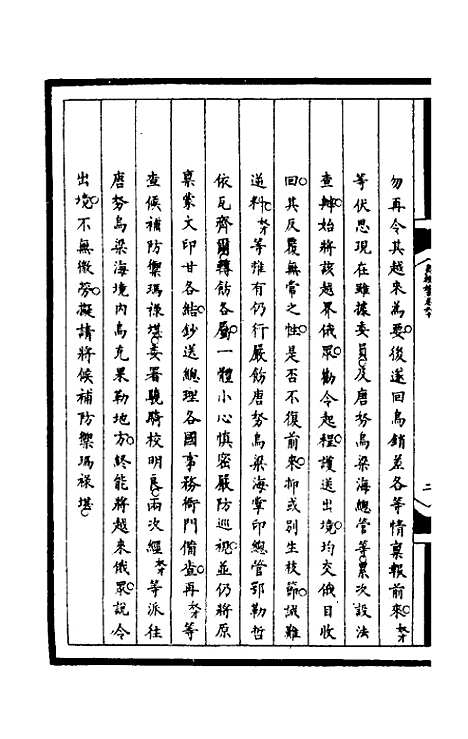 勿再令其越來為要後遂回烏銷差各等情稟報前來奴才
等伏思現在雖據委員及唐努烏梁海總管等累次設法
查辦始將該越界俄眾勸令起程護送出境均交俄目收
回其反覆無常之性是否不復前來抑或別生枝節誠難
逆料奴才等惟有仍行嚴飭唐努烏梁海掌印總管鄂勒哲
依瓦齊爾轉飭各屬一體小心慎密嚴防巡視並仍將原
稟蒙文印甘各結鈔送總理各國事務衙門備查再奴才等
查候補防禦瑪祿堪委署驍騎校明良兩次經奴才等派往
唐努烏梁海境內烏克果勒地方終能將越來俄眾說令
出境不無微勞擬請將候補防禦瑪祿堪
二